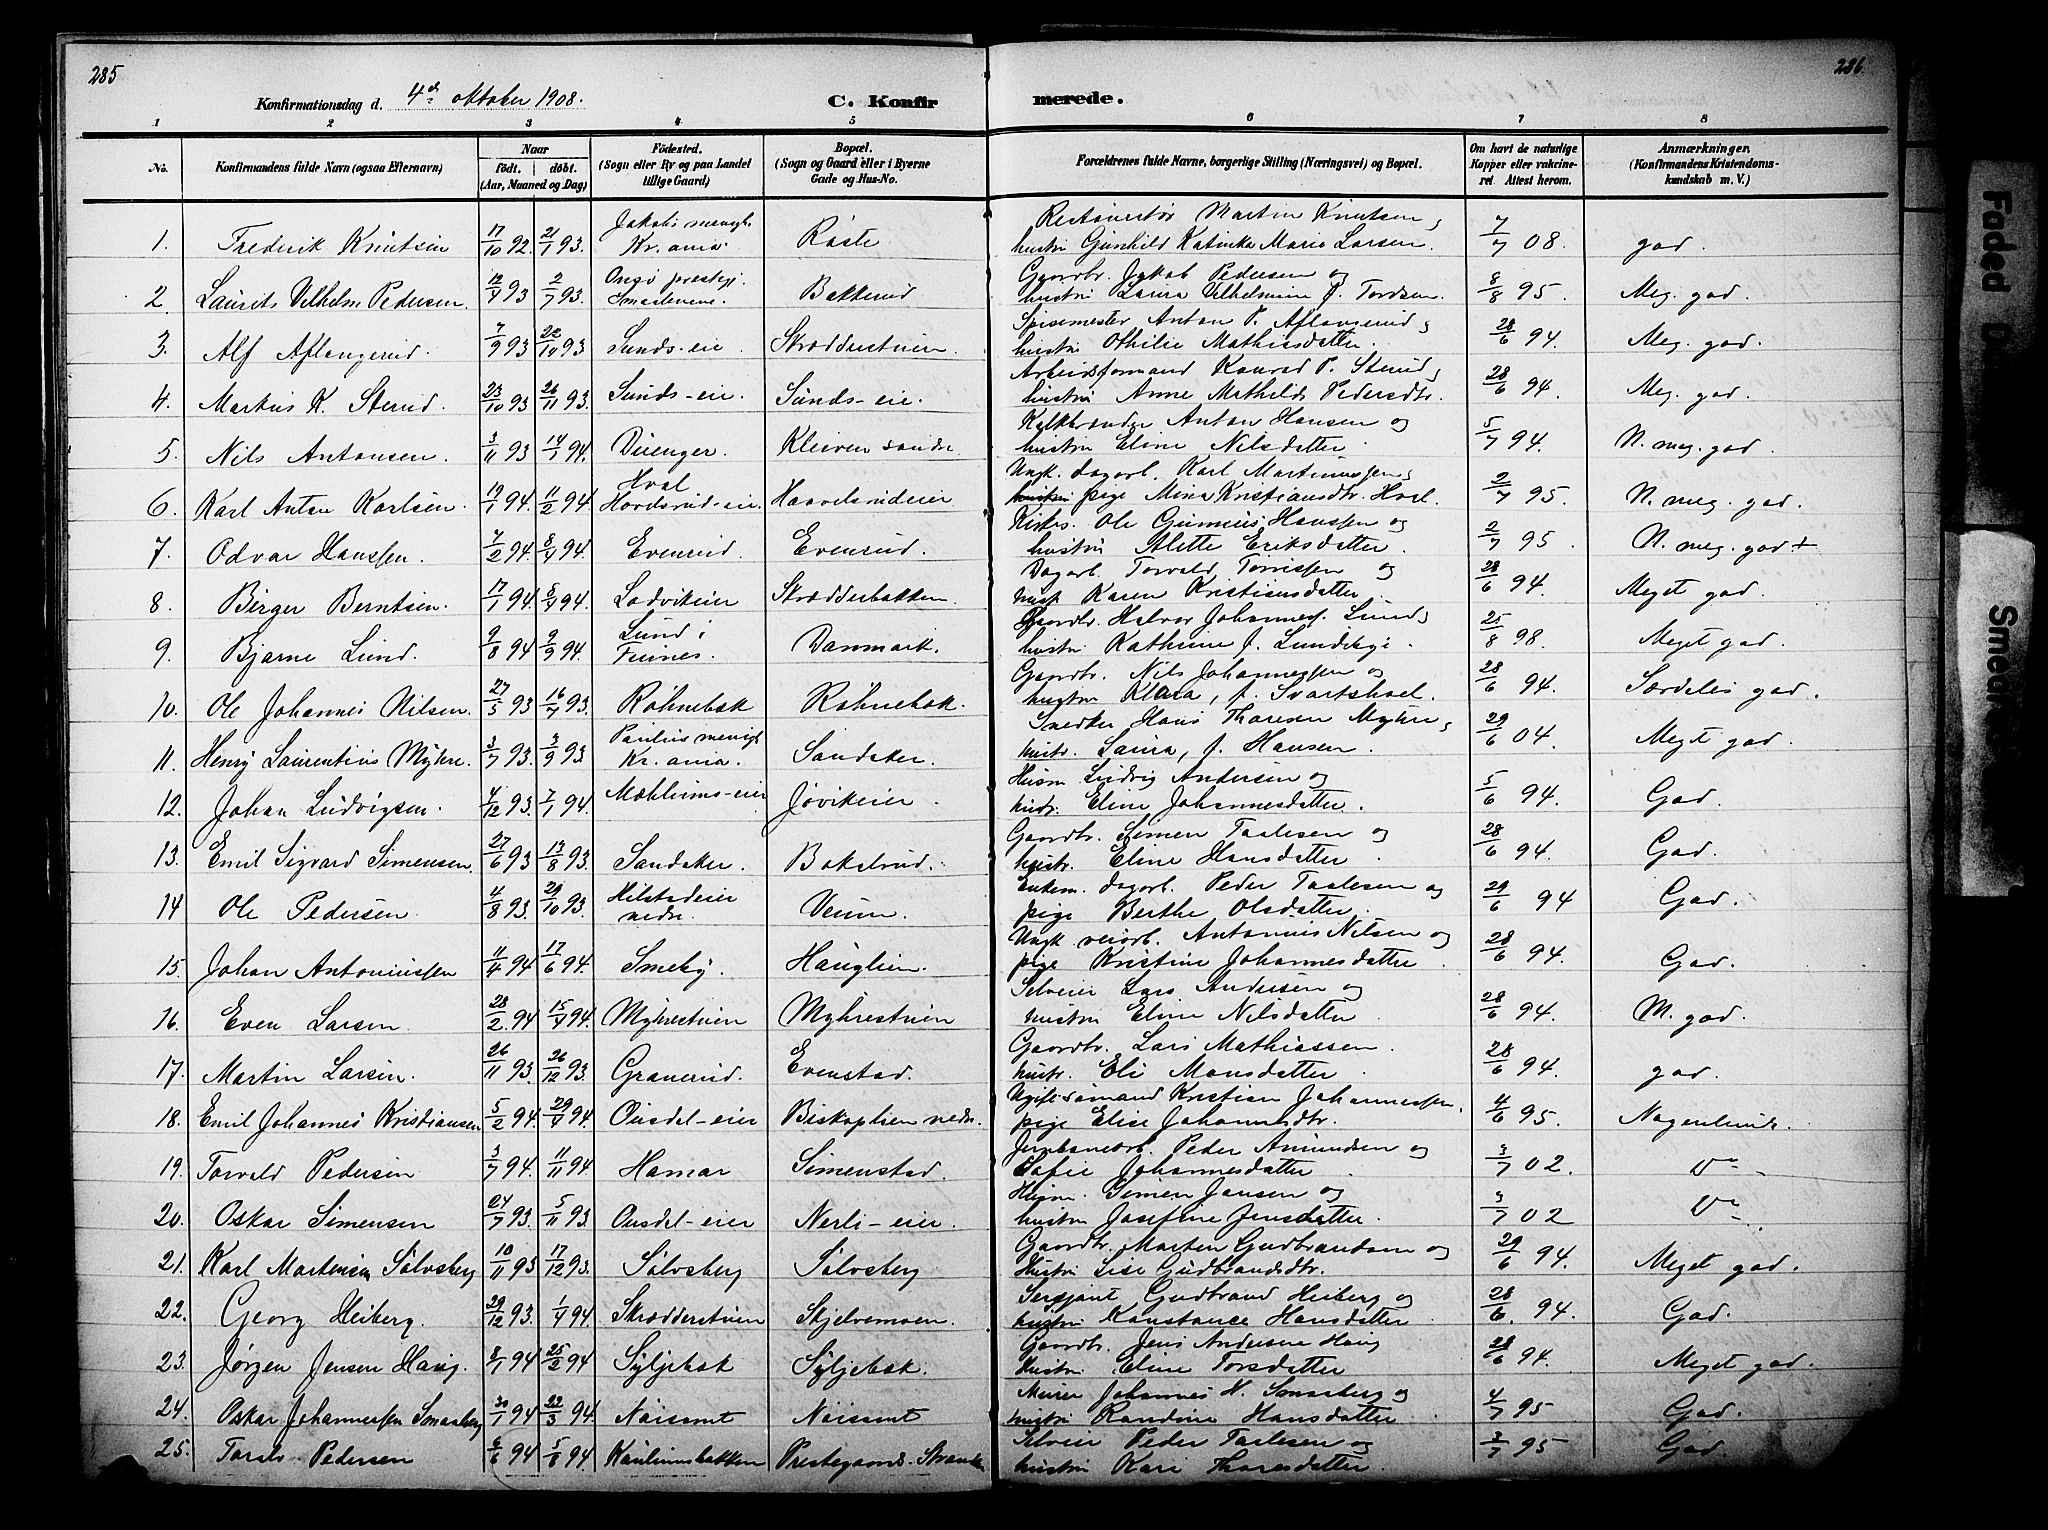 285
286.
Konfirmationsdag d. 4de oktober 1908.
C. Konfirmerede.
1 2 3 4 5 6 7 8
No. Konfirmandens fulde Navn (ogsaa Efternavn) Naar født. døbt. (Aar, Maaned og Dag) Fødested. (Sogn eller By og paa Landet tillige Gaard) Bopæl. (Sogn og Gaard eller i Byerne Gade og Hus-No. Forældrenes fulde Navne, borgerlige Stilling (Næringsvei) og Bopæl. Om havt de naturlige Kopper eller vakcineret. Attest herom. Anmærkninger. (Konfirmandens Kristendomskundskab m. V.)
1. Frederik Knutsen 17/10 92. 21/1 93. Jakobs menigh. Kr.ania. Røste Martin Knutsen, hustru Gunhild Katinka Marie Larsen. 7/7 08. god.
2. Laurits Vilhelm Pedersen. 12/4 93 2/7 93. Onsø prestegj. Smaalenene. Bakkerud Gaardbr. Jakob Pedersen og hustru Laura Vilhelmine f. Tordsen. 8/8 95. Meg. god.
3. Alf Aflangerud. 7/9 93 22/10 93. Sunds-eie Skrædderstuen. Spisemester Anton P. Aflangerud, hustru Othilie Mathisdatter. 28/6 94. Meg. god.
4. Martus K. Sterud. 23/10 93 26/11 93. Sunds-eie Sunds-eie. Arbeidsformand Konrad P. Sterud, hustru Anne Mathilde Pedersdtr. 28/6 94. Meg. god.
5. Nils Antonsen. 3/11 93 14/1 94. Diienger. Kleiven søndre Kalkbrænder Anton Hansen og hustru Eline Nilsdatter. 5/7 94. N. meg. god.
6. Karl Anton Karlsen. 19/1 94. 11/2 94. Hval Hovdsrud-eie. Haavelsrudeier Ungk. dagarb. Karl Martinussen, pige Mina Kristiansdtr. Hval. 2/7 95. N. meg. god.
7. Odvar Hanssen. 7/2 94. 8/4 94. Evenrud. Evenrud. Ole Gunnius Hanssen og hustru Alette Eriksdatter. 2/7 95. N. meg. god +
8. Birger Berntsen. 17/1 94. 8/4 94. Lodvikeier Skrædderbakken Dagarb. Torvald Torrissen og hust. Karen Kristiansdatter. 28/6 94. Meget god.
9. Bjarne Lund. 9/8 94 9/9 94. Lund i Furnes. Danmark. Gaardbr. Halvor Johannes. Lund, hustru Kathrine f. Lundeby. 25/8 98. Meget god.
10. Ole Johannes Nilsen. 27/5 93 16/7 93. Røhnebæk Røhnebæk. Gaardbr. Nils Johannessen og hustru Klara, f. Svartshoel. 28/6 94. Særdeles god.
11. Henry Laurentius Myhre. 3/7 93. 3/9 93 Paulus menigh Kr.ania. Sandaker. Snedker Hans Thoresen Myhre, hustr. Laura, f. Hansen. 29/6 04. Meget god.
12. Johan Ludvigsen. 4/12 93. 7/1 94. Mæhlums-eier Jøvikeier. Husm Ludvig Andersen og hustr. Eline Johannesdatter. 5/6 94. God.
13. Emil Sigvard Simensen. 27/6 93. 13/8 93. Sandaker. Bakstrud. Gaardbr. Simen Taalesen og hustr. Eline Hansdatter. 28/6 94. God.
14 Ole Pedersen. 4/8 93. 29/10 93. Hilstadeier nedre. Veum. Enkem. dagarb. Peder Taalesen og pige Berthe Olsdatter. 29/6 94 God.
15. Johan Antoniussen 11/4 94 17/6 94. Smeby. Hauglien. Ungk veiarb. Antonius Nilsen og pige Kristine Johannesdatter. 28/6 94. God.
16. Even Larsen. 28/2 94 15/4 94. Myhrestuen Myhrestuen Selveier Lars Andersen og hustru Eline Nilsdatter. 28/6 94. M. god.
17. Martin Larsen. 26/11 93. 26/12 93. Granerud. Evenstad. Gaardbr. Lars Mathiassen. hustr. Eli Monsdatter. 28/6 94. god.
18. Emil Johannes Kristiansen 5/2 94. 29/4 94. Ousdal-eier Biskoplien nedr. Ugift sømand Kristian Johannessen. pige Elise Johannsdtr. 4/6 95. Nogenlunde.
19. Torvald Pedersen 3/7 94. 11/11 94. Hamar Simenstad. Jernbanearb. Peder Amundsen og Sofie Johannesdatter. 3/7 02. Do
20. Oskar Simensen 24/7 93. 5/11 93. Ousdal-eier Nerli-eier. Husm. Simen Jansen og hustru Josefine Jensdatter. 3/7 02 Do
21. Karl Mortensen Sølvsberg 10/11 93 17/12 93. Sølvsberg Sølvsberg Gaardbr. Morten Gudbrandsen og Hustru Lise Gudbrandsdtr. 29/6 94. Meget god.
22. Georg Heiberg. 29/12 93. 1/4 94. Skrædderstuen Skjelvemoen. Sersjant Gudbrand Heiberg og hustru Konstance Hansdatter. 28/6. 94. God.
23. Jørgen Jensen Haug. 8/1 94 25/2 94 Syljebæk Syljebæk. Gaardbr. Jens Andersen Haug Hustru Eline Torsdatter. 28/6 94. Meget god.
24. Oskar Johannessen Smaaberg 30/1 94 23/3 94. Nøisomt Nøisomt Murer Johannes H. Smaaberg og hustru Randine Hansdatter. 4/7 95. God.
25. Torals Pedersen 6/6 94 5/8 94. Kaulumsbakken Prestegaards-Stranden Selveier Peder Taalesen og hustru Kari Thoresdatter. 3/7 95 God.
Faded
Smeared